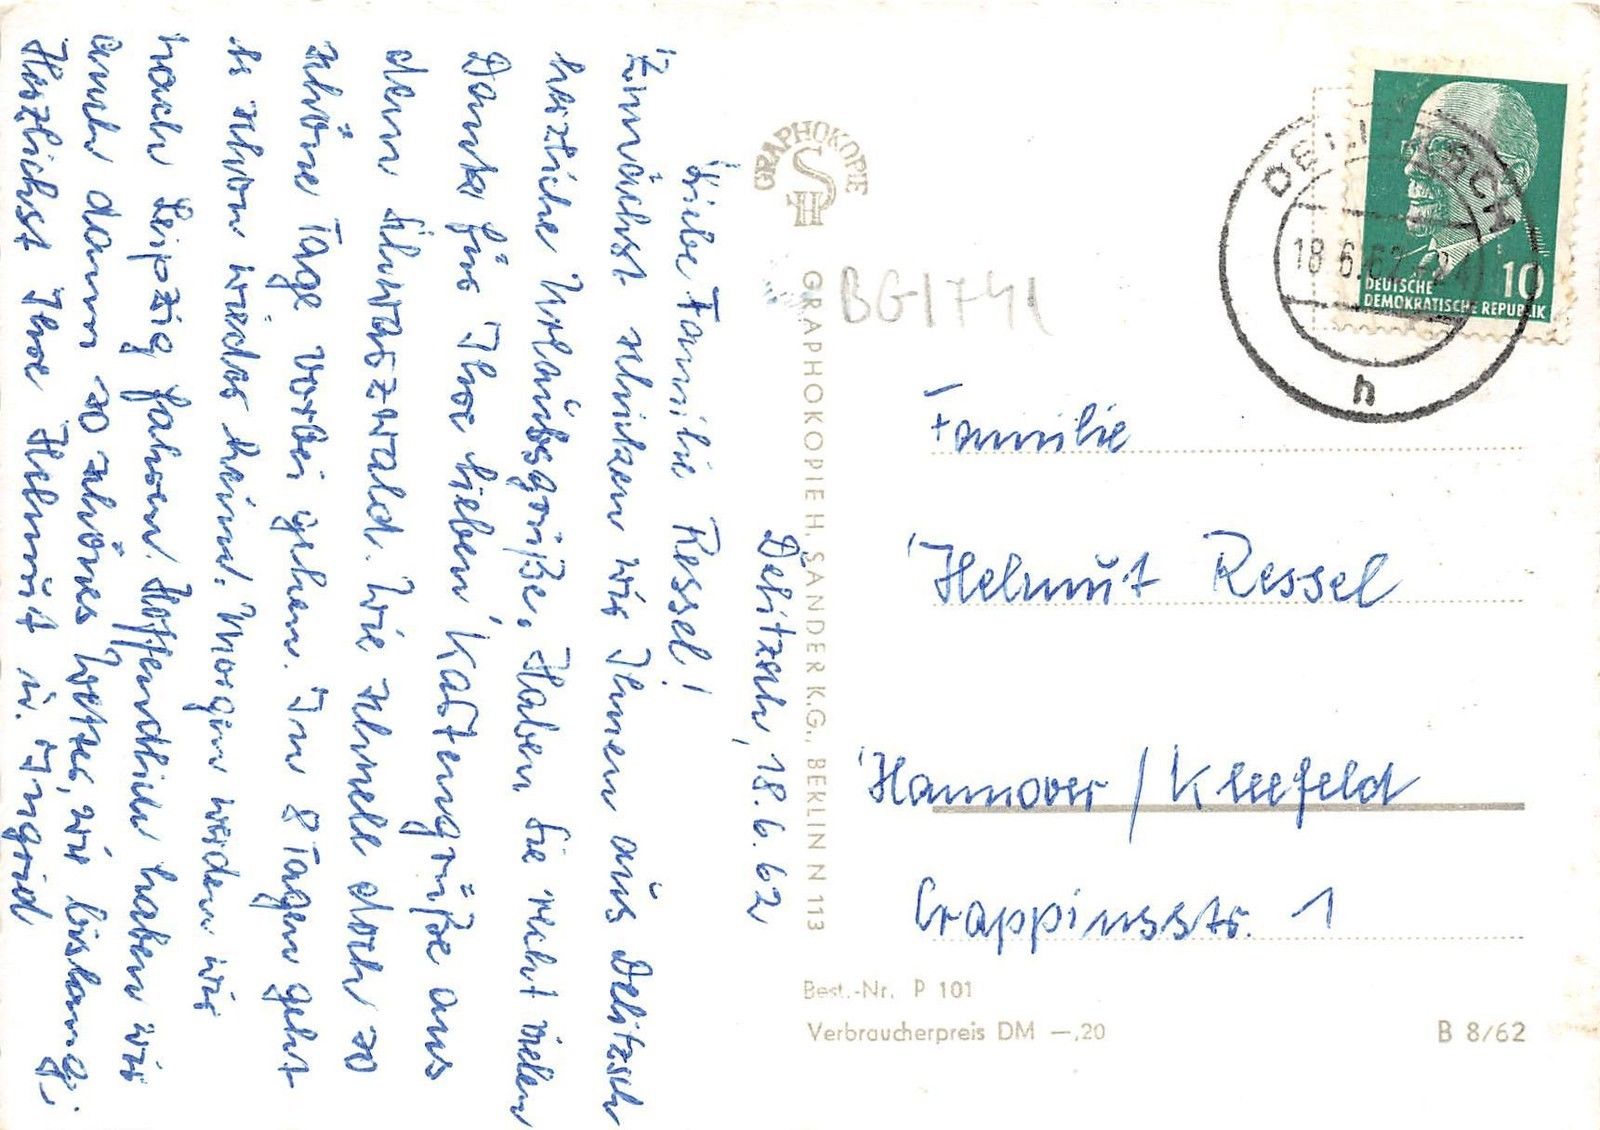 Delitzsch, 18.6.62
Liebe Familie Ressel!
Zunächst schicken wir Ihnen aus Delitzsch
herzliche Urlaubsgrüße. Haben Sie recht vielen
Dank für Ihre lieben Kartengrüße aus
dem Schwarzwald. Wie schnell doch so
schöne Tage vorbei gehen. In 8 Tagen geht
es schon wieder heim. Morgen werden wir
nach Leipzig fahren. Hoffendlich haben wir
auch dann so schönes Wetter, wie bislang;
Herzlichst Ihre Helmut u. Ingrid
GRAPHOKOPIE
GRAPHOKOPIE H. SANDER K.G., BERLIN N 113
BG1741
DELITZSCH
18.6.62-24
h
10
DEUTSCHE
DEMOKRATISCHE REPUBLIK
Familie
Helmut Ressel
Hannover / Kleefeld
Crappiusstr. 1
Best.-Nr. P 101
Verbraucherpreis DM —,20
B 8/62